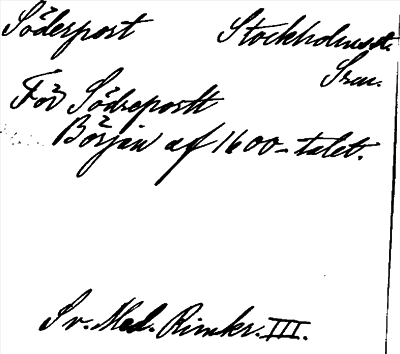 Söderpost Stockholmsst.
Srm.
För Södrepostt
Början af 1600-talet.
Sv. Med. Rimkr. III.